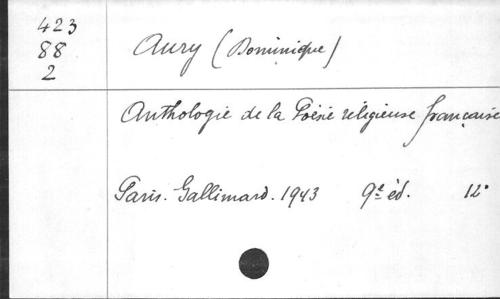 423
88
2
Aury (Dominique)
Anthologie de la Poésie religieuse française
Paris. Gallimard. 1943 9e éd. 12°